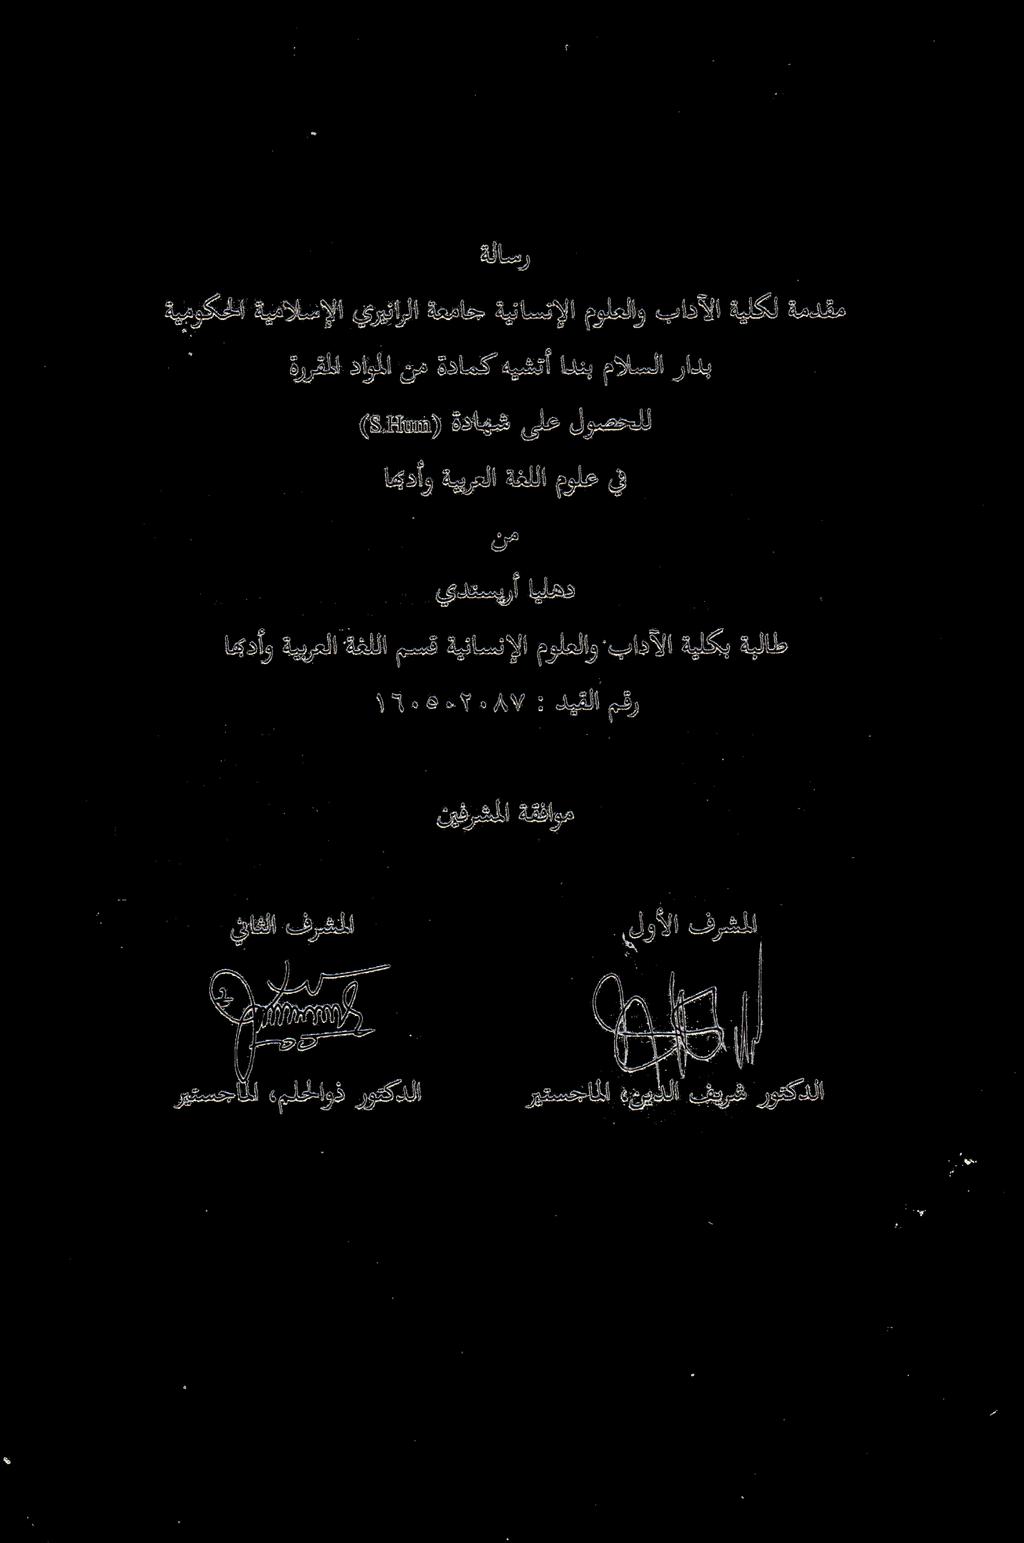 رسالة
مقدمة لكلية الآداب والعلوم الإنسانية جامعة الرانيري الإسلامية الحكومية
بدار السلام بندا أتشيه كمادة من المواد المقررة
للحصول على شهادة (S.Hum)
في علوم اللغة العربية وأدبها
من
دهليا أريستدي
طالبة بكلية الآداب والعلوم الإنسانية قسم اللغة العربية وأدبها
رقم القيد : ١٦٠٥٠٢٠٨٧
موافقة المشرفين
المشرف الأول المشرف الثاني
الدكتور شريف الدين، الماجستير الدكتور ذوالحلم، الماجستير